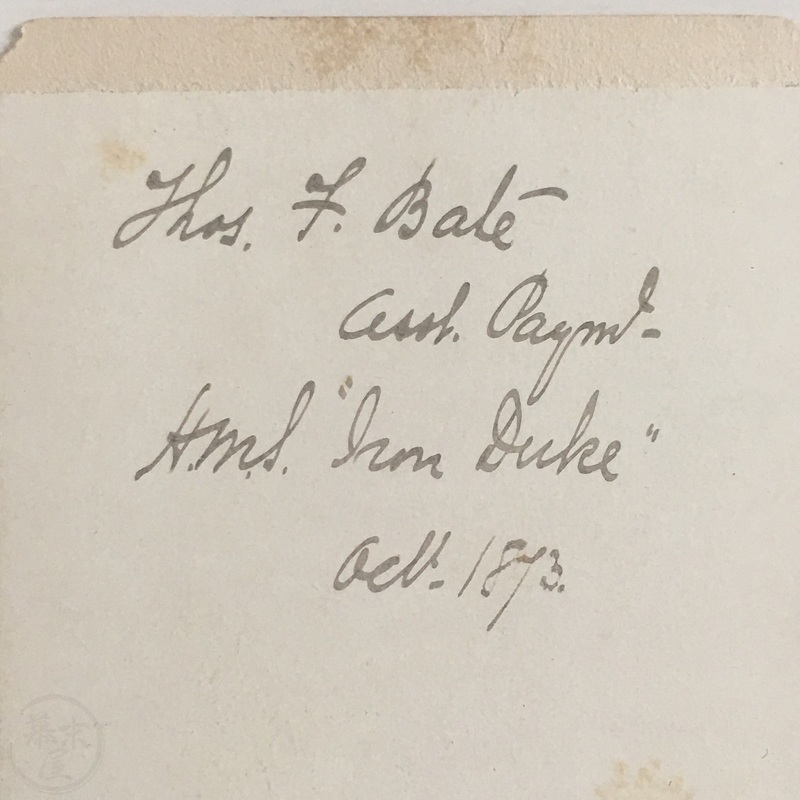 Thos. F. Bate
Asst. Paymr.
H.M.S. "Iron Duke"
Octr. 1873.
幕末屋